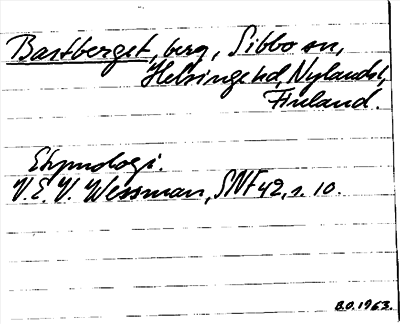 Bastberget, berg, Sibbo sn,
Helsinge hd, Nylands l,
Finland.
Etymologi.
V.E.V. Wessman, SNF 42, s. 10.
B.O. 1963.